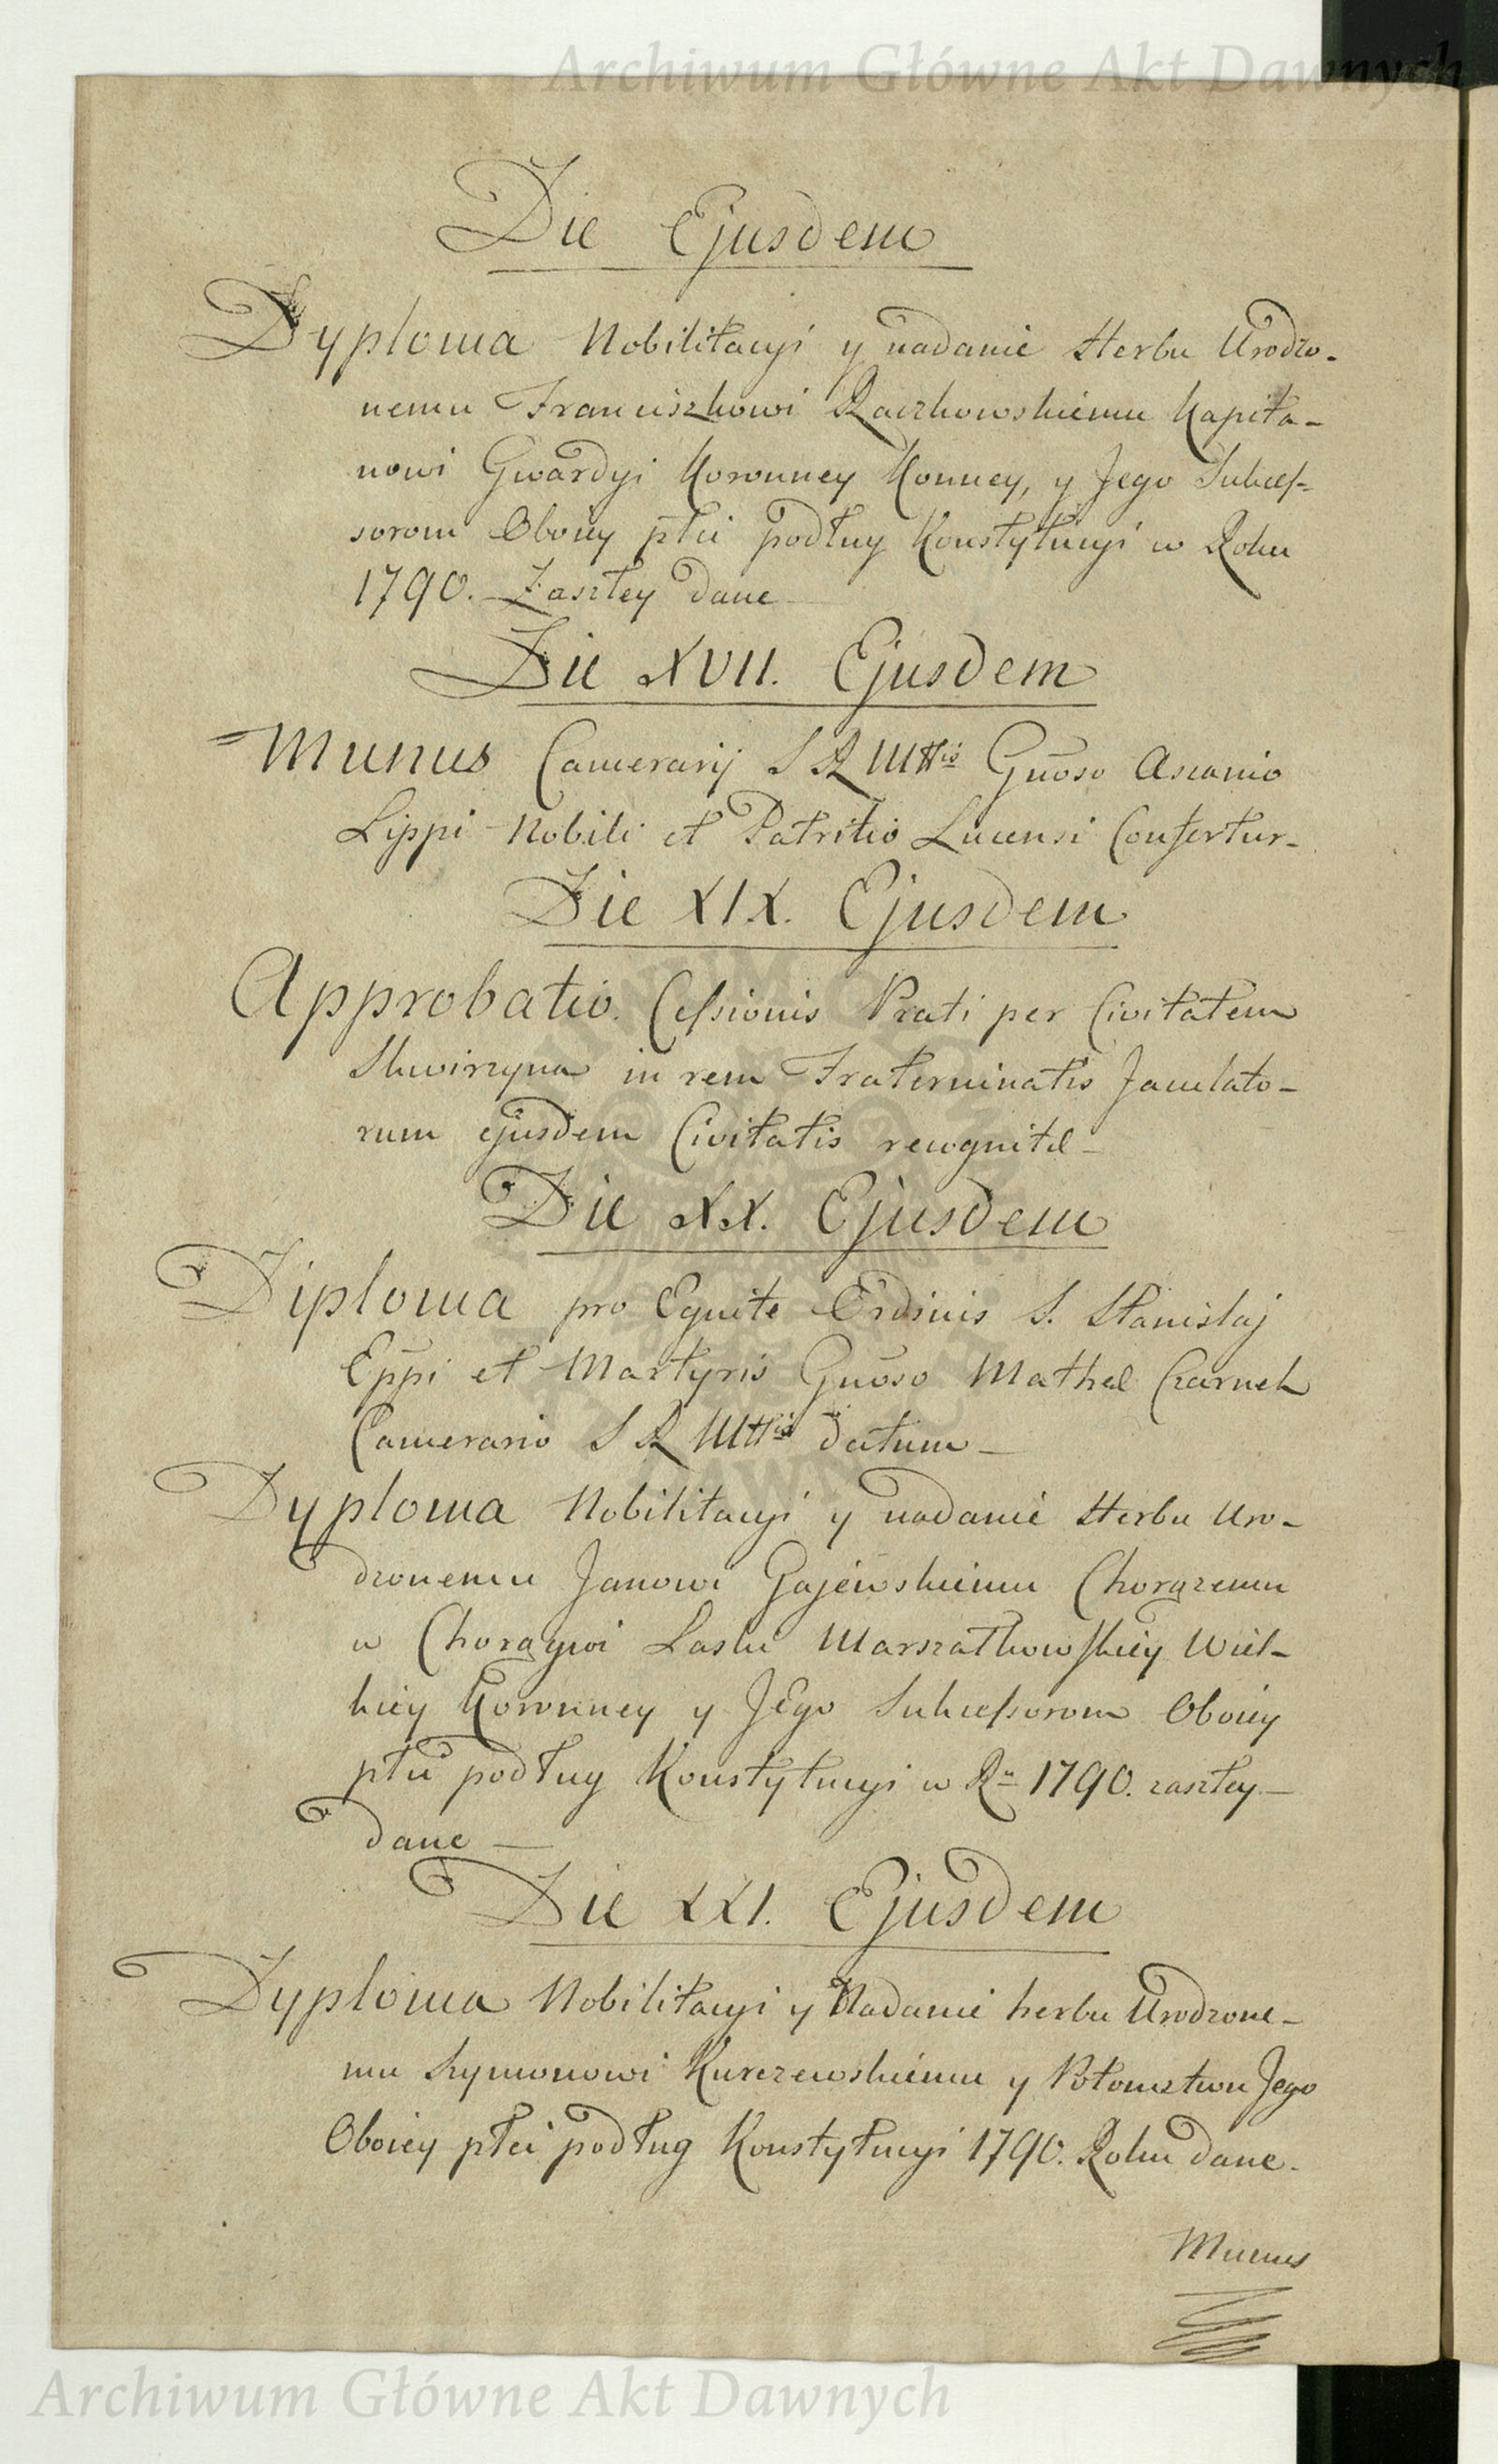 Archiwum Główne Akt Dawnych
Die Ejusdem
Dyploma Nobilitacyi y nadanie Herbu Urodzo-
nemu Franciszkowi Raczkowskiemu Kapita-
nowi Gwardyi Koronney Konney, y Jego Sukcess-
sorom Oboiey płci podług Konstytucyi w Roku
1790. Zaszłey dane
Die XVII. Ejusdem
Munus Camerarij S R Mttis Gnoso Ascanio
Lippi Nobili et Patritio Lucensi Confertur-
Die XIX. Ejusdem
Approbatio. Cessionis Prati per Civitatem
Skwirzyna in rem Fraterninatis Jaculato-
rum ejusdem Civitatis recognitæ-
Die XX. Ejusdem
Diploma pro Equite Ordinis S. Stanislaj
Eppi et Martyris Gnoso Mathæ Czarnek
Camerario S R Mttis datum-
Dyploma Nobilitacyi y nadanie Herbu Uro-
dzonemu Janowi Gajewskiemu Chorążemu
w Chorągwi Laski Marszałkowskiey Wiel-
kiey Koronney y Jego Sukcessorom Oboiey
płci podług Konstytucyi w Ru 1790. zaszłey-
dane-
Die XXI. Ejusdem
Dyploma Nobilitacyi y Nadanie herbu Urodzone-
mu Szymonowi Kurczewskiemu y Potomstwu Jego
Oboiey płci podług Konstytucyi 1790. Roku dane.
Munus
Archiwum Główne Akt Dawnych